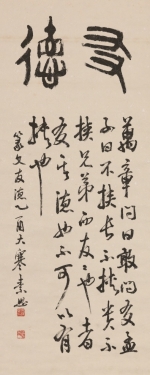 友德
萬章問曰敢問友孟
子曰不挾長不挾貴不
挾兄弟而友々也者
友其德也不可以有
挾也
篆文友德乙酉大寒